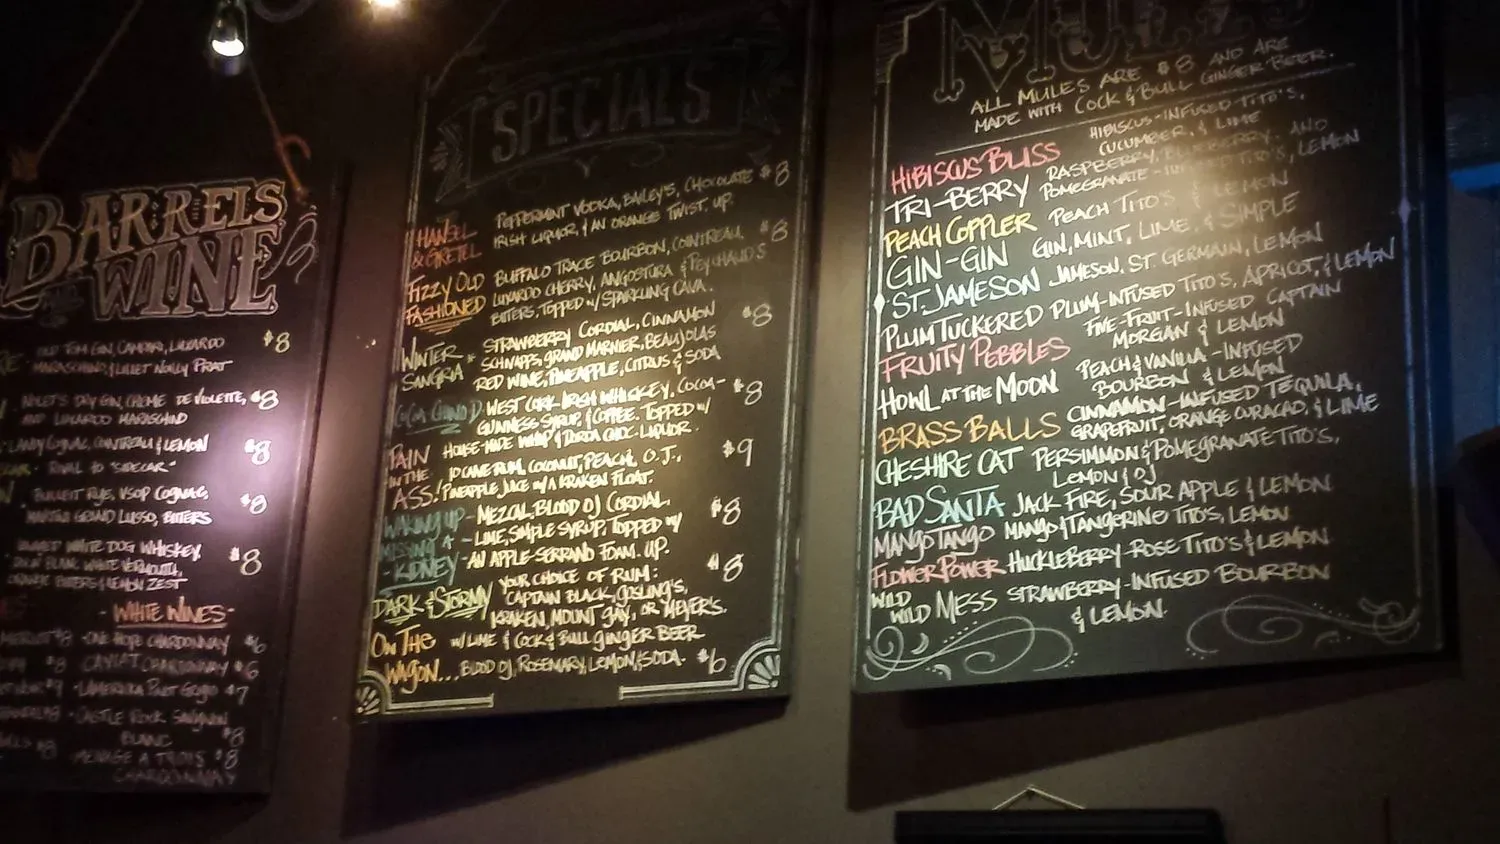 BARRELS
WINE
OLD TOM GIN, CAMPARI, LUXARDO $8
MARASCHINO, & LILLET NOILLY PRAT
DRY GIN, CREME DE VIOLETTE, $8
AND LUXARDO MARASCHINO
COGNAC, COINTREAU & LEMON $8
RIVAL TO "SIDECAR"
BULLEIT RYE, VSOP COGNAC, $8
BITTERS
WHITE DOG WHISKEY, $8
BLANC WHITE VERMOUTH,
ORANGE BITTERS & LEMON ZEST
- WHITE WINES -
MERLOT $8 - ONE HOPE CHARDONNAY $6
$8 CHARDONNAY $6
$7
- CASTLE ROCK
BLANC $8
$8 - MENAGE A TROIS $8
CHARDONNAY
SPECIALS
HANSEL & GRETEL PEPPERMINT VODKA, BAILEY'S, CHOCOLATE $8
IRISH LIQUOR, & AN ORANGE TWIST. UP.
FIZZY OLD FASHIONED BUFFALO TRACE BOURBON, COINTREAU, $8
LUXARDO CHERRY, ANGOSTURA & PEYCHAUD'S
BITTERS, TOPPED W/ SPARKLING CAVA.
WINTER SANGRIA STRAWBERRY CORDIAL, CINNAMON $8
SCHNAPPS, GRAND MARNIER, BEAUJOLAS
RED WINE, PINEAPPLE, CITRUS & SODA
WEST CORK IRISH WHISKEY, COCOA- $8
GUINNESS SYRUP, & COFFEE. TOPPED W/
HOUSE-MADE WHIP & CHOC. LIQUOR.
PAIN IN THE ASS! COCONUT, PEACH, O.J., $9
PINEAPPLE JUICE W/ A KRAKEN FLOAT.
WAKING UP MISSING A KIDNEY - MEZCAL, BLOOD OJ CORDIAL, $8
- LIME, SIMPLE SYRUP, TOPPED W/
- AN APPLE-SERRANO FOAM. UP.
DARK & STORMY YOUR CHOICE OF RUM: $8
CAPTAIN BLACK, GOSLING'S,
KRAKEN, MOUNT GAY, OR MEYER'S.
W/ LIME & COCK & BULL GINGER BEER
ON THE WAGON... BLOOD OJ, ROSEMARY, LEMON, & SODA. $6
MULES
ALL MULES ARE $8 AND ARE
MADE WITH COCK & BULL GINGER BEER.
HIBISCUS BLISS HIBISCUS-INFUSED TITO'S,
CUCUMBER, & LIME
TRI-BERRY RASPBERRY, BLUEBERRY, AND
POMEGRANATE- TITO'S, LEMON
PEACH COPPLER PEACH TITO'S & LEMON
GIN-GIN GIN, MINT, LIME, & SIMPLE
ST. JAMESON JAMESON, ST. GERMAIN, LEMON
PLUM TUCKERED PLUM-INFUSED TITO'S, APRICOT, & LEMON
FRUITY PEBBLES FIVE-FRUIT-INFUSED CAPTAIN
MORGAN & LEMON
HOWL AT THE MOON PEACH & VANILLA-INFUSED
BOURBON & LEMON
BRASS BALLS CINNAMON-INFUSED TEQUILA,
GRAPEFRUIT, ORANGE CURACAO, & LIME
CHESHIRE CAT PERSIMMON & POMEGRANATE TITO'S,
LEMON & OJ
BAD SANTA JACK FIRE, SOUR APPLE & LEMON
MANGO TANGO MANGO & TANGERINE TITO'S, LEMON
FLOWER POWER HUCKLEBERRY-ROSE TITO'S & LEMON
WILD WILD MESS STRAWBERRY-INFUSED BOURBON
& LEMON